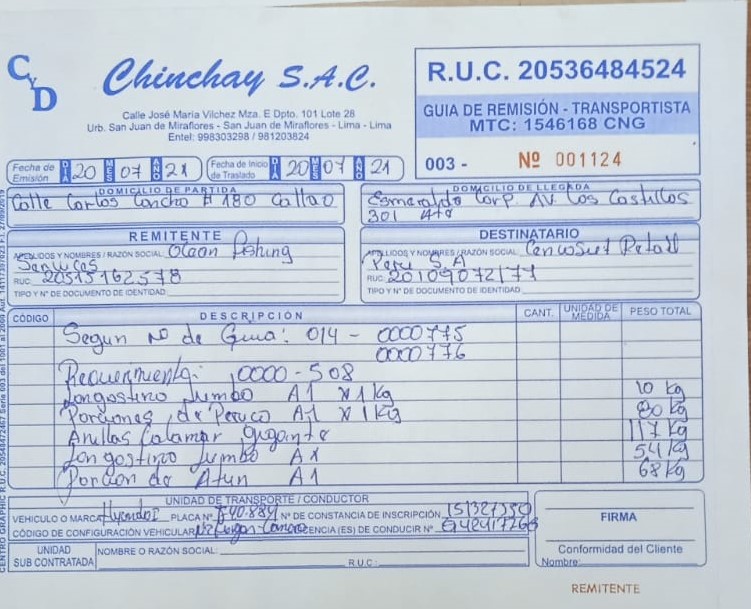 CyD
Chinchay S.A.C.
Calle José María Vilchez Mza. E Dpto. 101 Lote 28
Urb. San Juan de Miraflores - San Juan de Miraflores - Lima - Lima
Entel: 998303298 / 981203824
R.U.C. 20536484524
GUIA DE REMISIÓN - TRANSPORTISTA
MTC: 1546168 CNG
003 - Nº 001124
Fecha de Emisión DIA 20 MES 07 AÑO 21 Fecha de Inicio de Traslado DIA 20 MES 07 AÑO 21
DOMICILIO DE PARTIDA
Calle Carlos Concha # 180 Callao
DOMICILIO DE LLEGADA
Esmeralda Corp. AV. Los Castillos
301 Ate
REMITENTE
APELLIDOS Y NOMBRES / RAZÓN SOCIAL Ocean Fishing
Services
RUC 20515162578
TIPO Y Nº DE DOCUMENTO DE IDENTIDAD
DESTINATARIO
APELLIDOS Y NOMBRES / RAZÓN SOCIAL Cencosud Retail
Peru S.A
RUC. 20109072177
TIPO Y Nº DE DOCUMENTO DE IDENTIDAD
CÓDIGO DESCRIPCIÓN CANT. UNIDAD DE MEDIDA PESO TOTAL
Segun Nº de Guia: 014 - 0000775
0000776
Requerimiento: 0000-508
Langostino Jumbo A1 x 1 Kg 10 Kg
Porciones de Perico A1 x 1 Kg 80 Kg
Anillas Calamar Gigante 117 Kg
Langostino Jumbo A1 54 Kg
Porcion de Atun A1 68 Kg
UNIDAD DE TRANSPORTE / CONDUCTOR
VEHICULO O MARCA Hyundai PLACA Nº Nº DE CONSTANCIA DE INSCRIPCIÓN
CÓDIGO DE CONFIGURACIÓN VEHICULAR LICENCIA (ES) DE CONDUCIR Nº
UNIDAD SUB CONTRATADA NOMBRE O RAZÓN SOCIAL: R.U.C.:
FIRMA
Conformidad del Cliente
Nombre:
REMITENTE